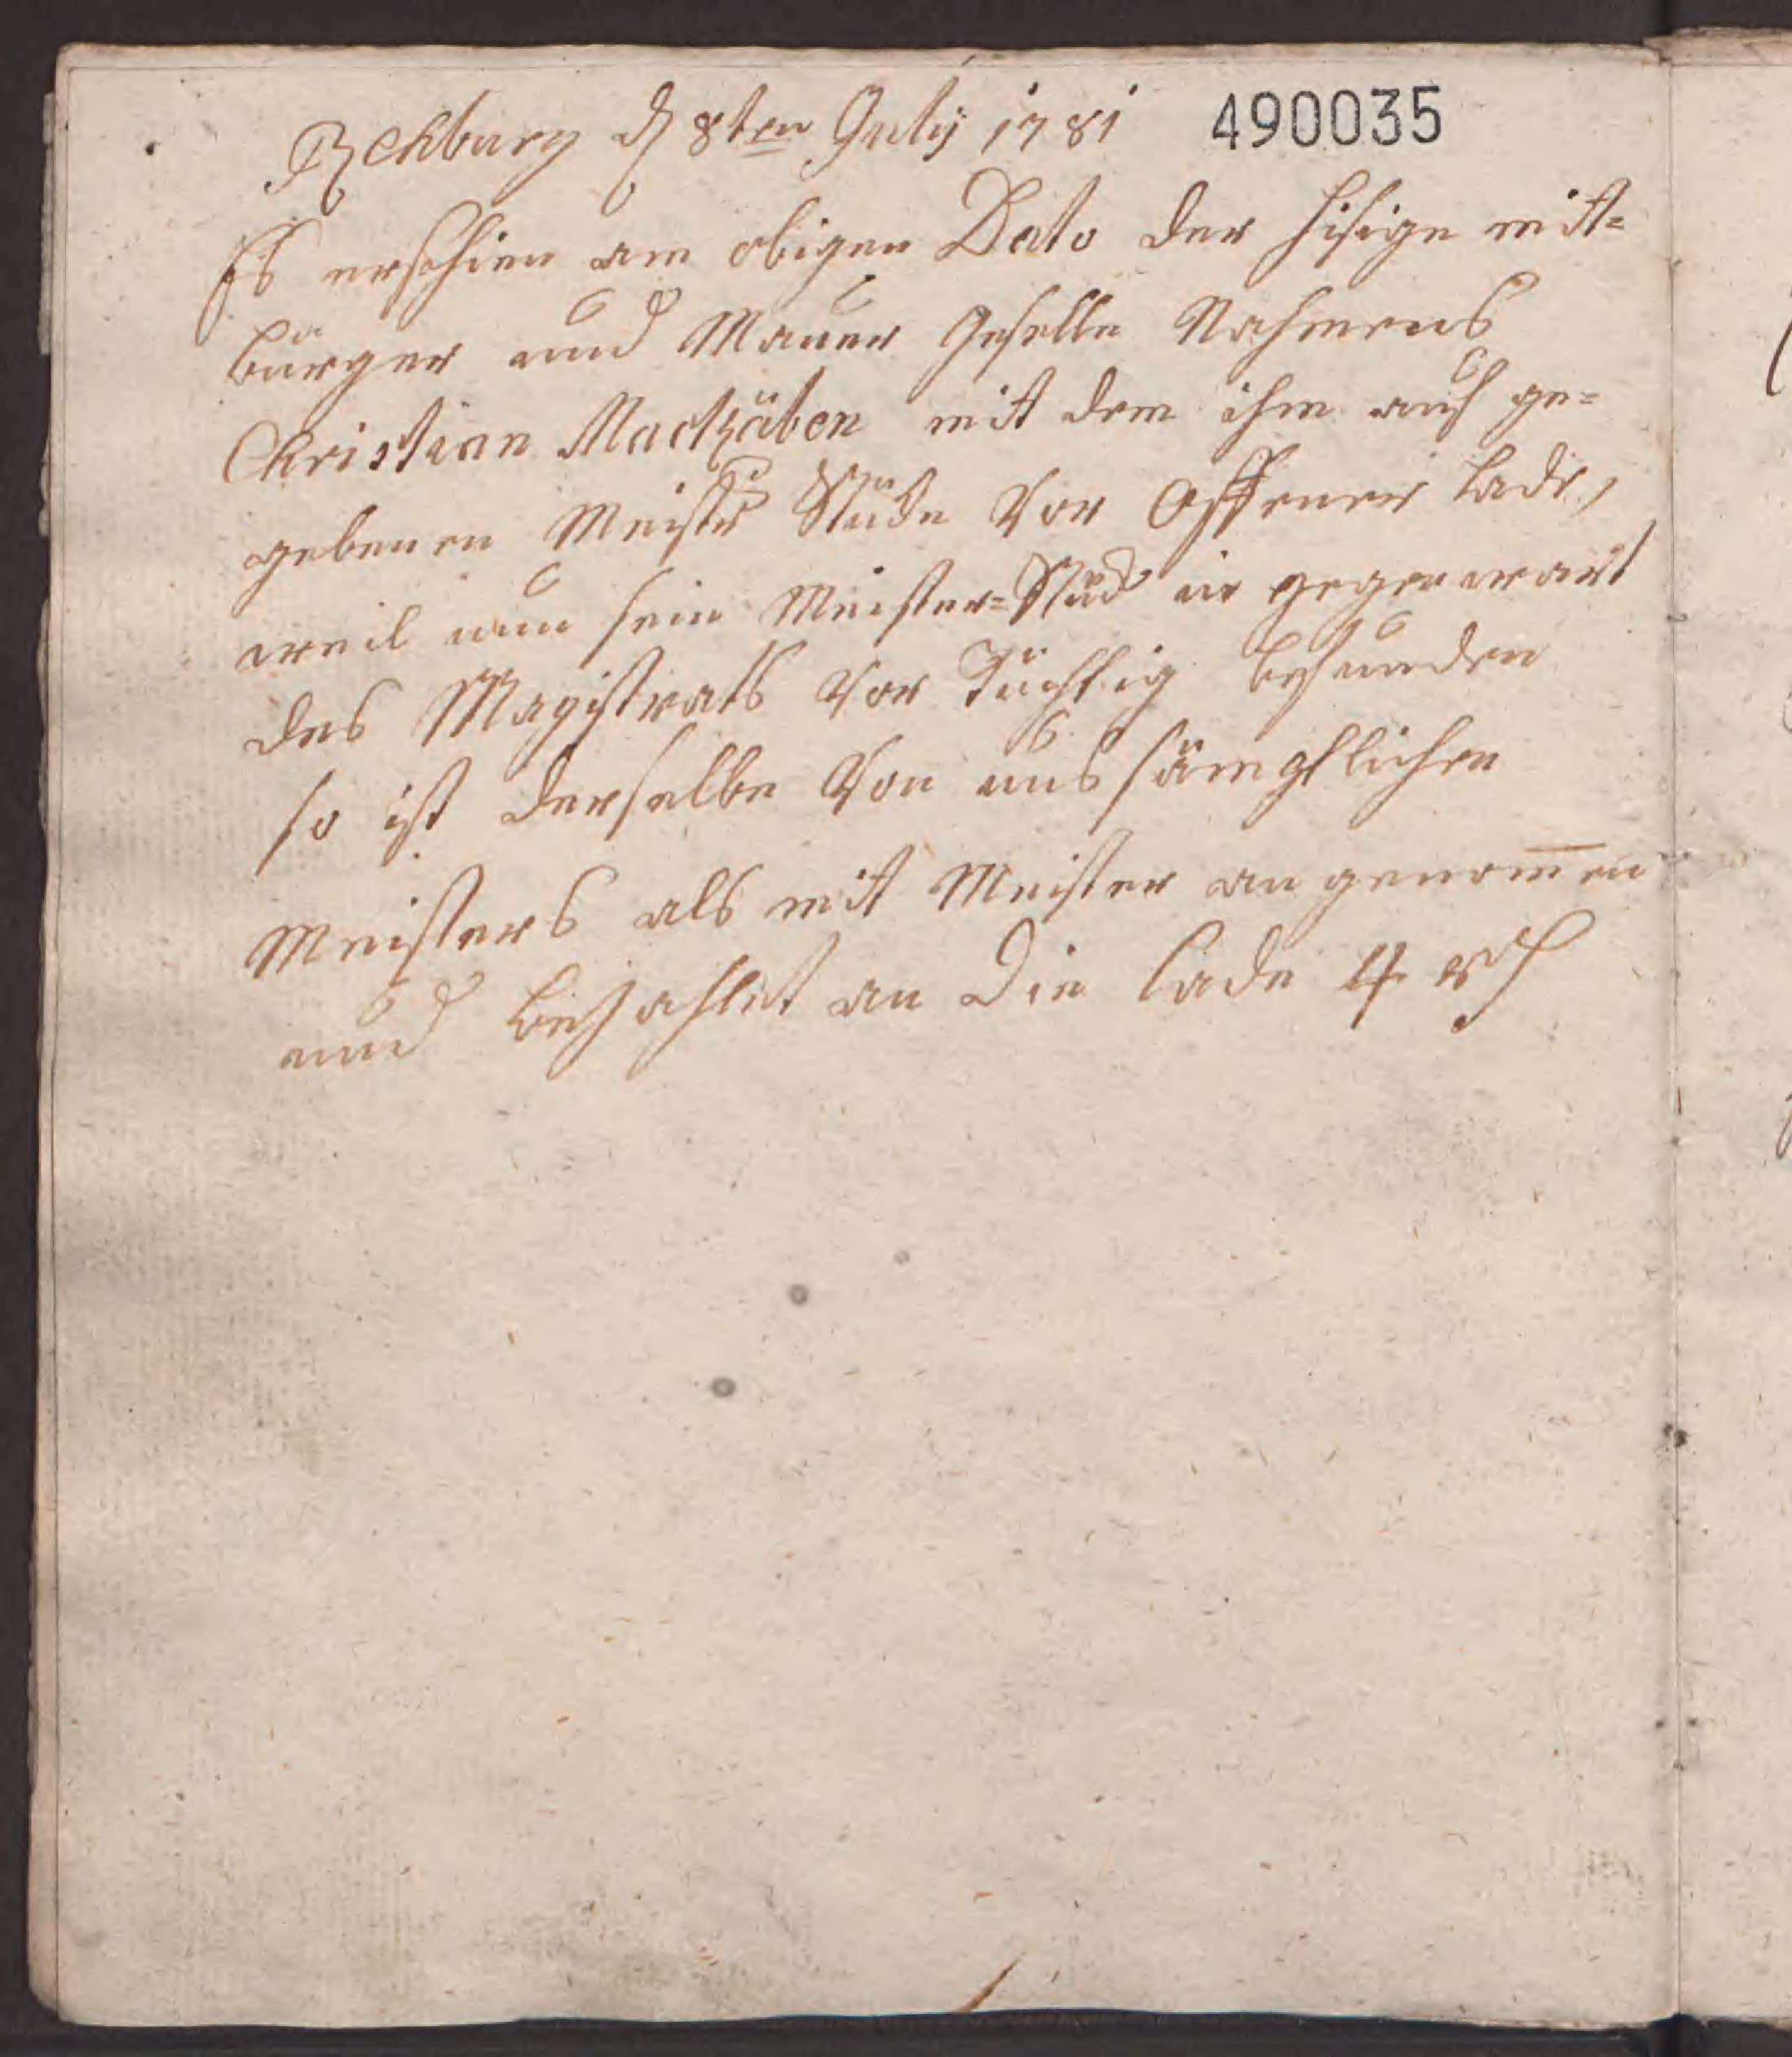 Rehburg d 8ten Julij 1781 490035
Es erschien am obigen Dato der hisige mit=
bürger und Mauer Geselle Nahmens
Christian Mackäben mit dem ihm auf ge=
gebenen Meister Stücke Vor Offener lade,
weil nun sein Meister=Stück in gegenwart
des Magistrats Vor Tüchtig befunden
so ist derselbe Von uns sämptlichen
Meisters als mit Meister an genom̄en
und bezahlet an die lade 4 rth